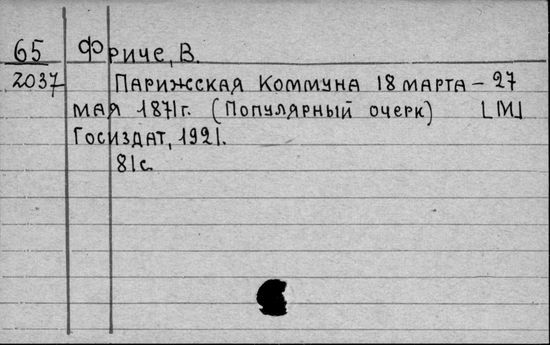 65 Фриче, В.
2037 Парижская Коммуна 18 марта – 27
мая 1871г. (Популярный очерк) [М]
Госиздат, 1921.
81с.